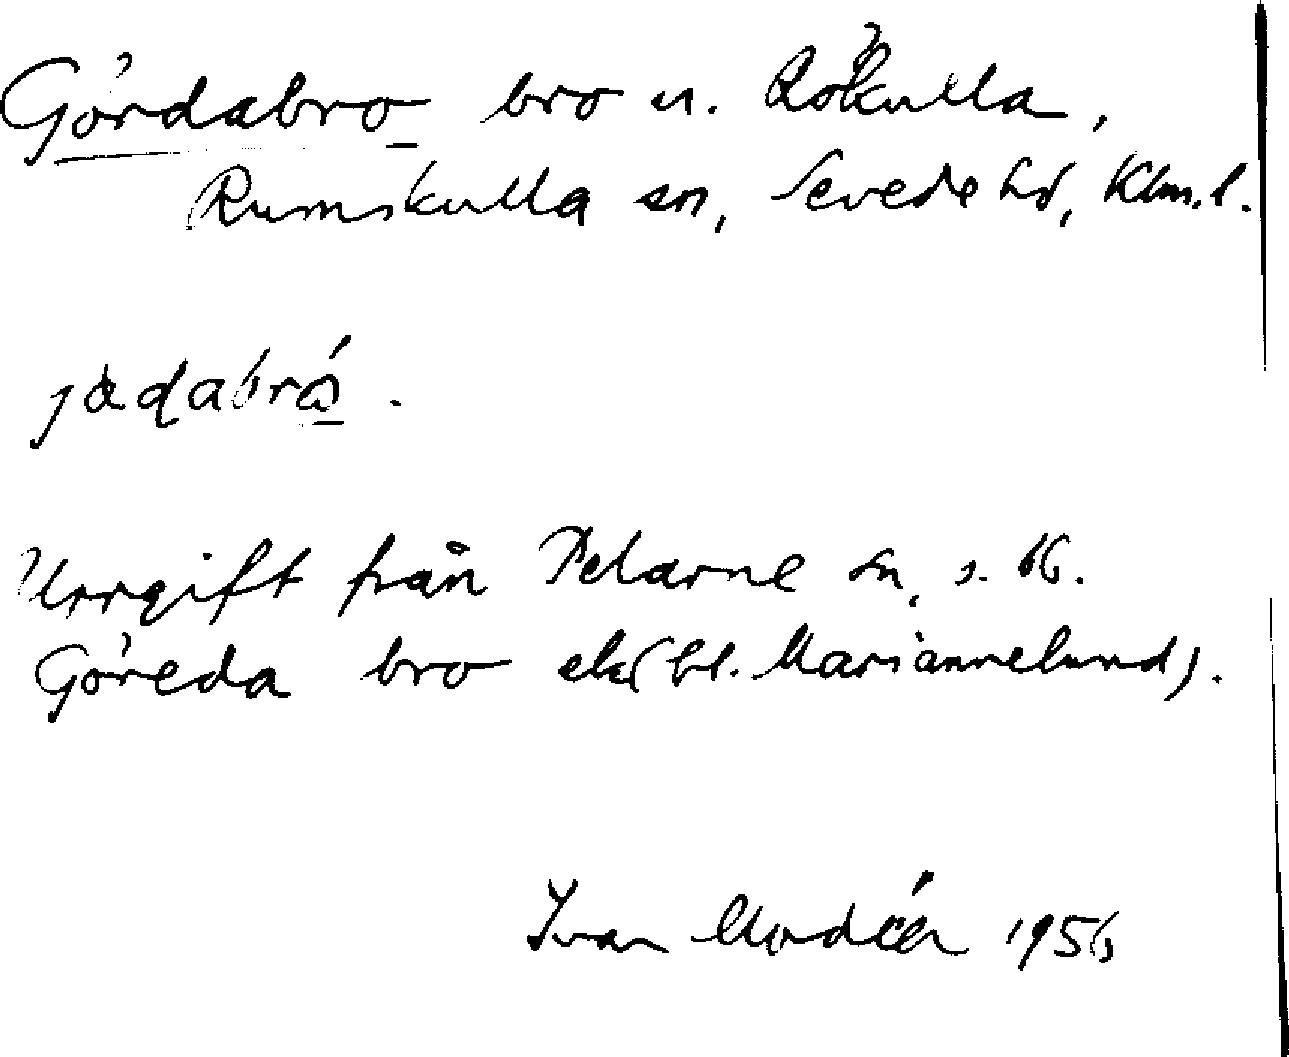 Gördabro bro n. Rökulla,
Rumskulla sn, Sevede hd, Klm. l.
jädabrо́.
Uppgift från Pelarne sn, s. 16.
Göreda bro ek (bl. Mariannelund).
Ivar Modéer 1956